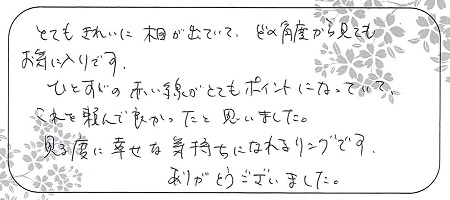 とてもきれいに木目が出ていて、どの角度から見ても
お気に入りです。
ひとすじの赤い線がとてもポイントになっていて、
これを頼んで良かったと思いました。
見る度に幸せな気持ちになれるリングです。
ありがとうございました。